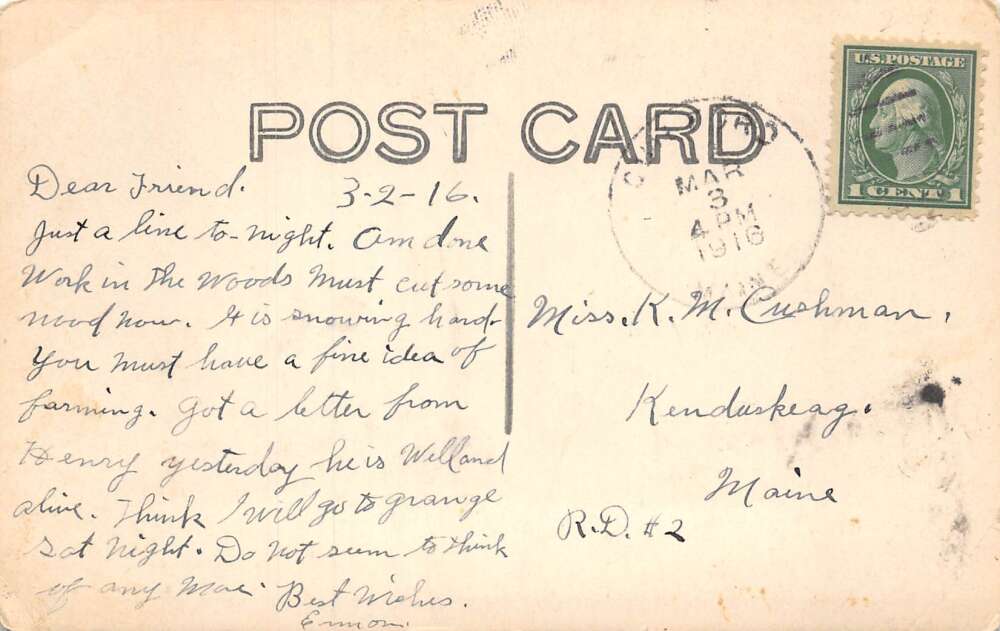 POST CARD
U.S. POSTAGE
1 CENT 1
MAR
3
4 PM
1916
MAINE
Dear Friend. 3-2-16.
Just a line to-night. Am done
Work in The Woods Must cut some
wood now. It is snowing hard.
You Must have a fine idea of
farming. Got a letter from
Henry yesterday he is Well and
alive. Think I will go to grange
Sat Night. Do Not seem to think
of any More. Best Wishes.
Miss. K. M. Cushman.
Kenduskeag.
Maine
R.D. #2